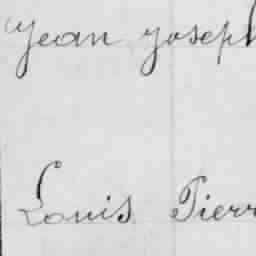 Jean Joseph
Louis Pierr